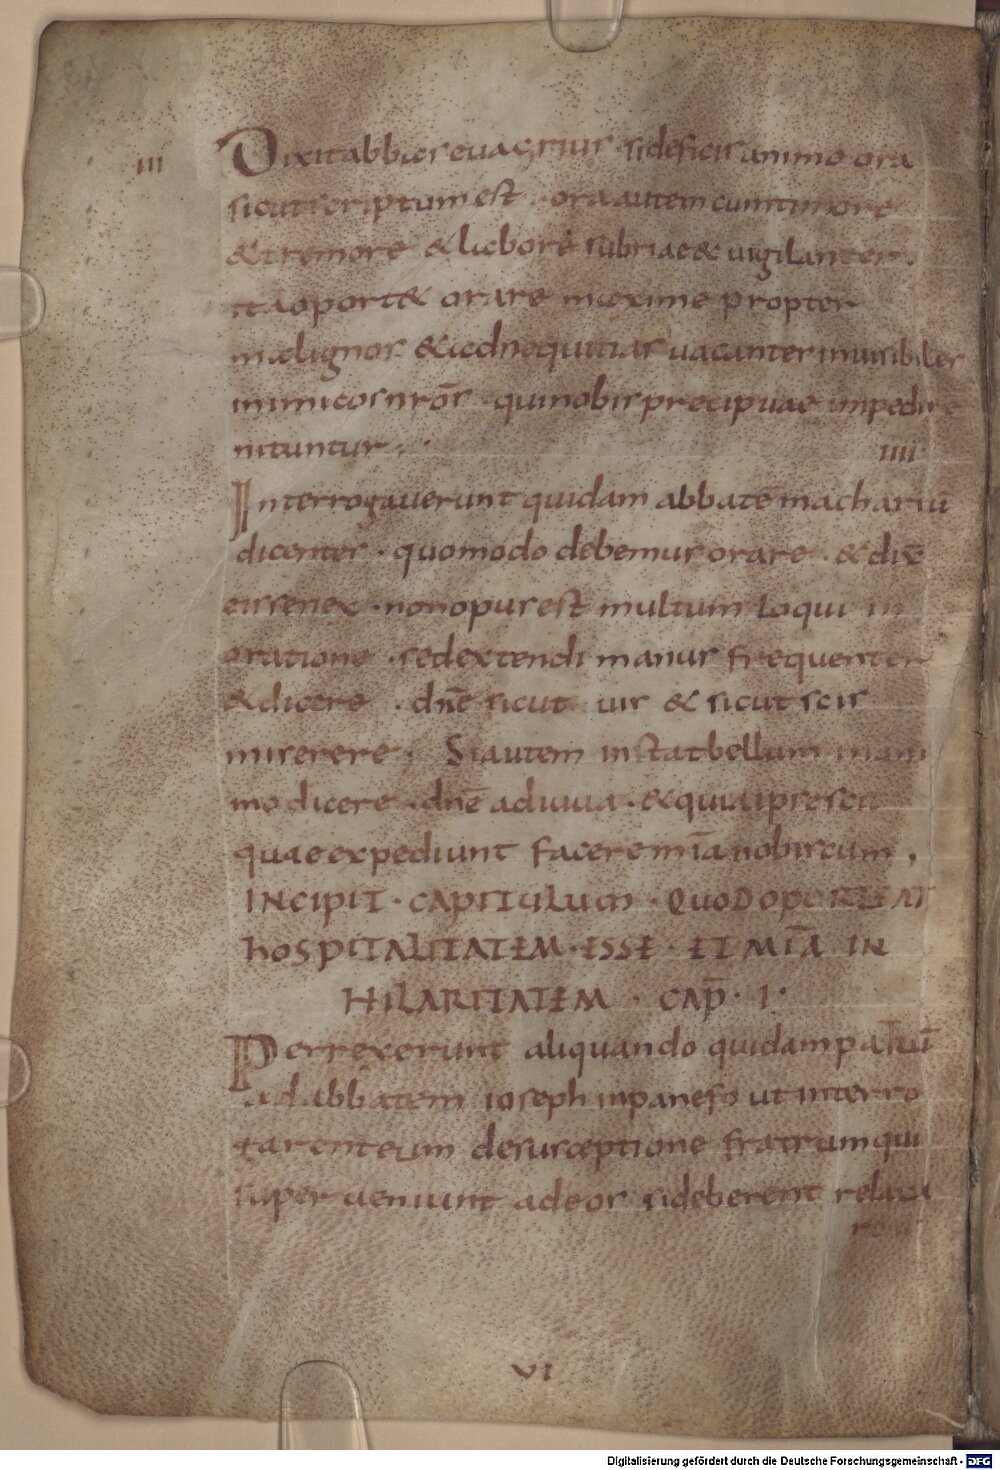 III Dixit abbas euagrius · si deficis animo ora
sicut scriptum est · ora autem cum timore
& tremore & labore subriae & uigilanter
ita oport& orare maxime propter
malignos & ad nequitias uacantes inuisibiles
inimicos nr̄os · qui nobis precipuae impedire
nituntur · IIII
Interrogauerunt quidam abbatē machariū
dicentes · quomodo debemus orare · & dix̄
eis senex · non opus est multum loqui in
oratione · sed extendi manus frequenter
& dicere · dn̄e sicut uis & sicut scis
miserere · Si autem instat bellum in ani
mo dicere · dn̄e adiuua · & quia ipse scit
quae expediunt facere mīa nobiscum ,
INCIPIT · CAPITULUM · QUOD OPORTEAT
hOSPITALITATEM · ESSE · ET MĪA IN
HILARITATEM · CAP̄ · I ·
Perrexerunt aliquando quidam patrū
ad abbatem ioseph in panefo ut interro
garent eum de susceptione fratrum qui
super ueniunt ad eos si deberent relaxa
VI
Digitalisierung gefördert durch die Deutsche Forschungsgemeinschaft - DFG